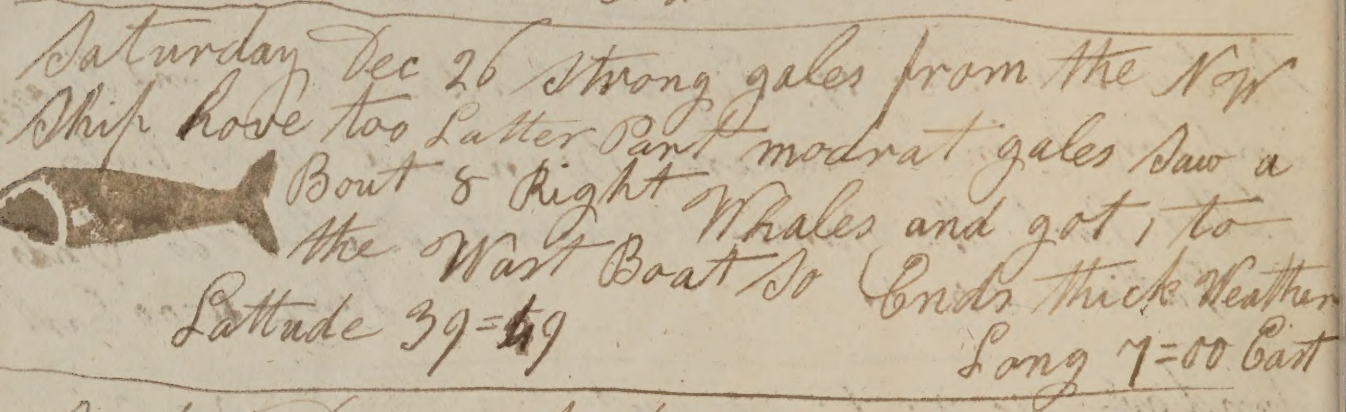 Saturday Dec 26 Strong gales from the NW
Ship hove too Latter Part modrat gales Saw a
Bout 8 Right Whales and got 1 to
the Wast Boat So Ends thick Weather
Lattude 39=49
Long 7=00 East